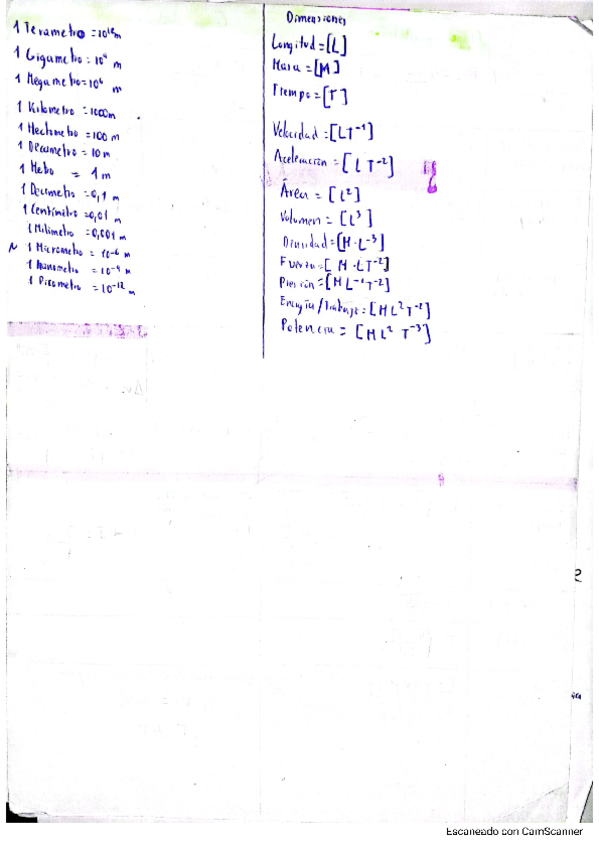 1 Terametro = 10¹²m
1 Gigametro = 10⁹ m
1 Megametro = 10⁶ m
1 Kilometro = 1000m
1 Hectometro = 100 m
1 Decametro = 10 m
1 Metro = 1 m
1 Decimetro = 0,1 m
1 Centímetro = 0,01 m
1 Milimetro = 0,001 m
1 Micrometro = 10⁻⁶ m
1 Nanometro = 10⁻⁹ m
1 Picometro = 10⁻¹² m
Dimensiones
Longitud = [L]
Masa = [M]
Tiempo = [T]
Velocidad = [LT⁻¹]
Aceleracion = [LT⁻²]
Área = [L²]
Volumen = [L³]
Densidad = [M·L⁻³]
Fuerza = [M·LT⁻²]
Presión = [ML⁻¹T⁻²]
Energía/Trabajo = [ML²T⁻²]
Potencia = [ML² T⁻³]
Escaneado con CamScanner